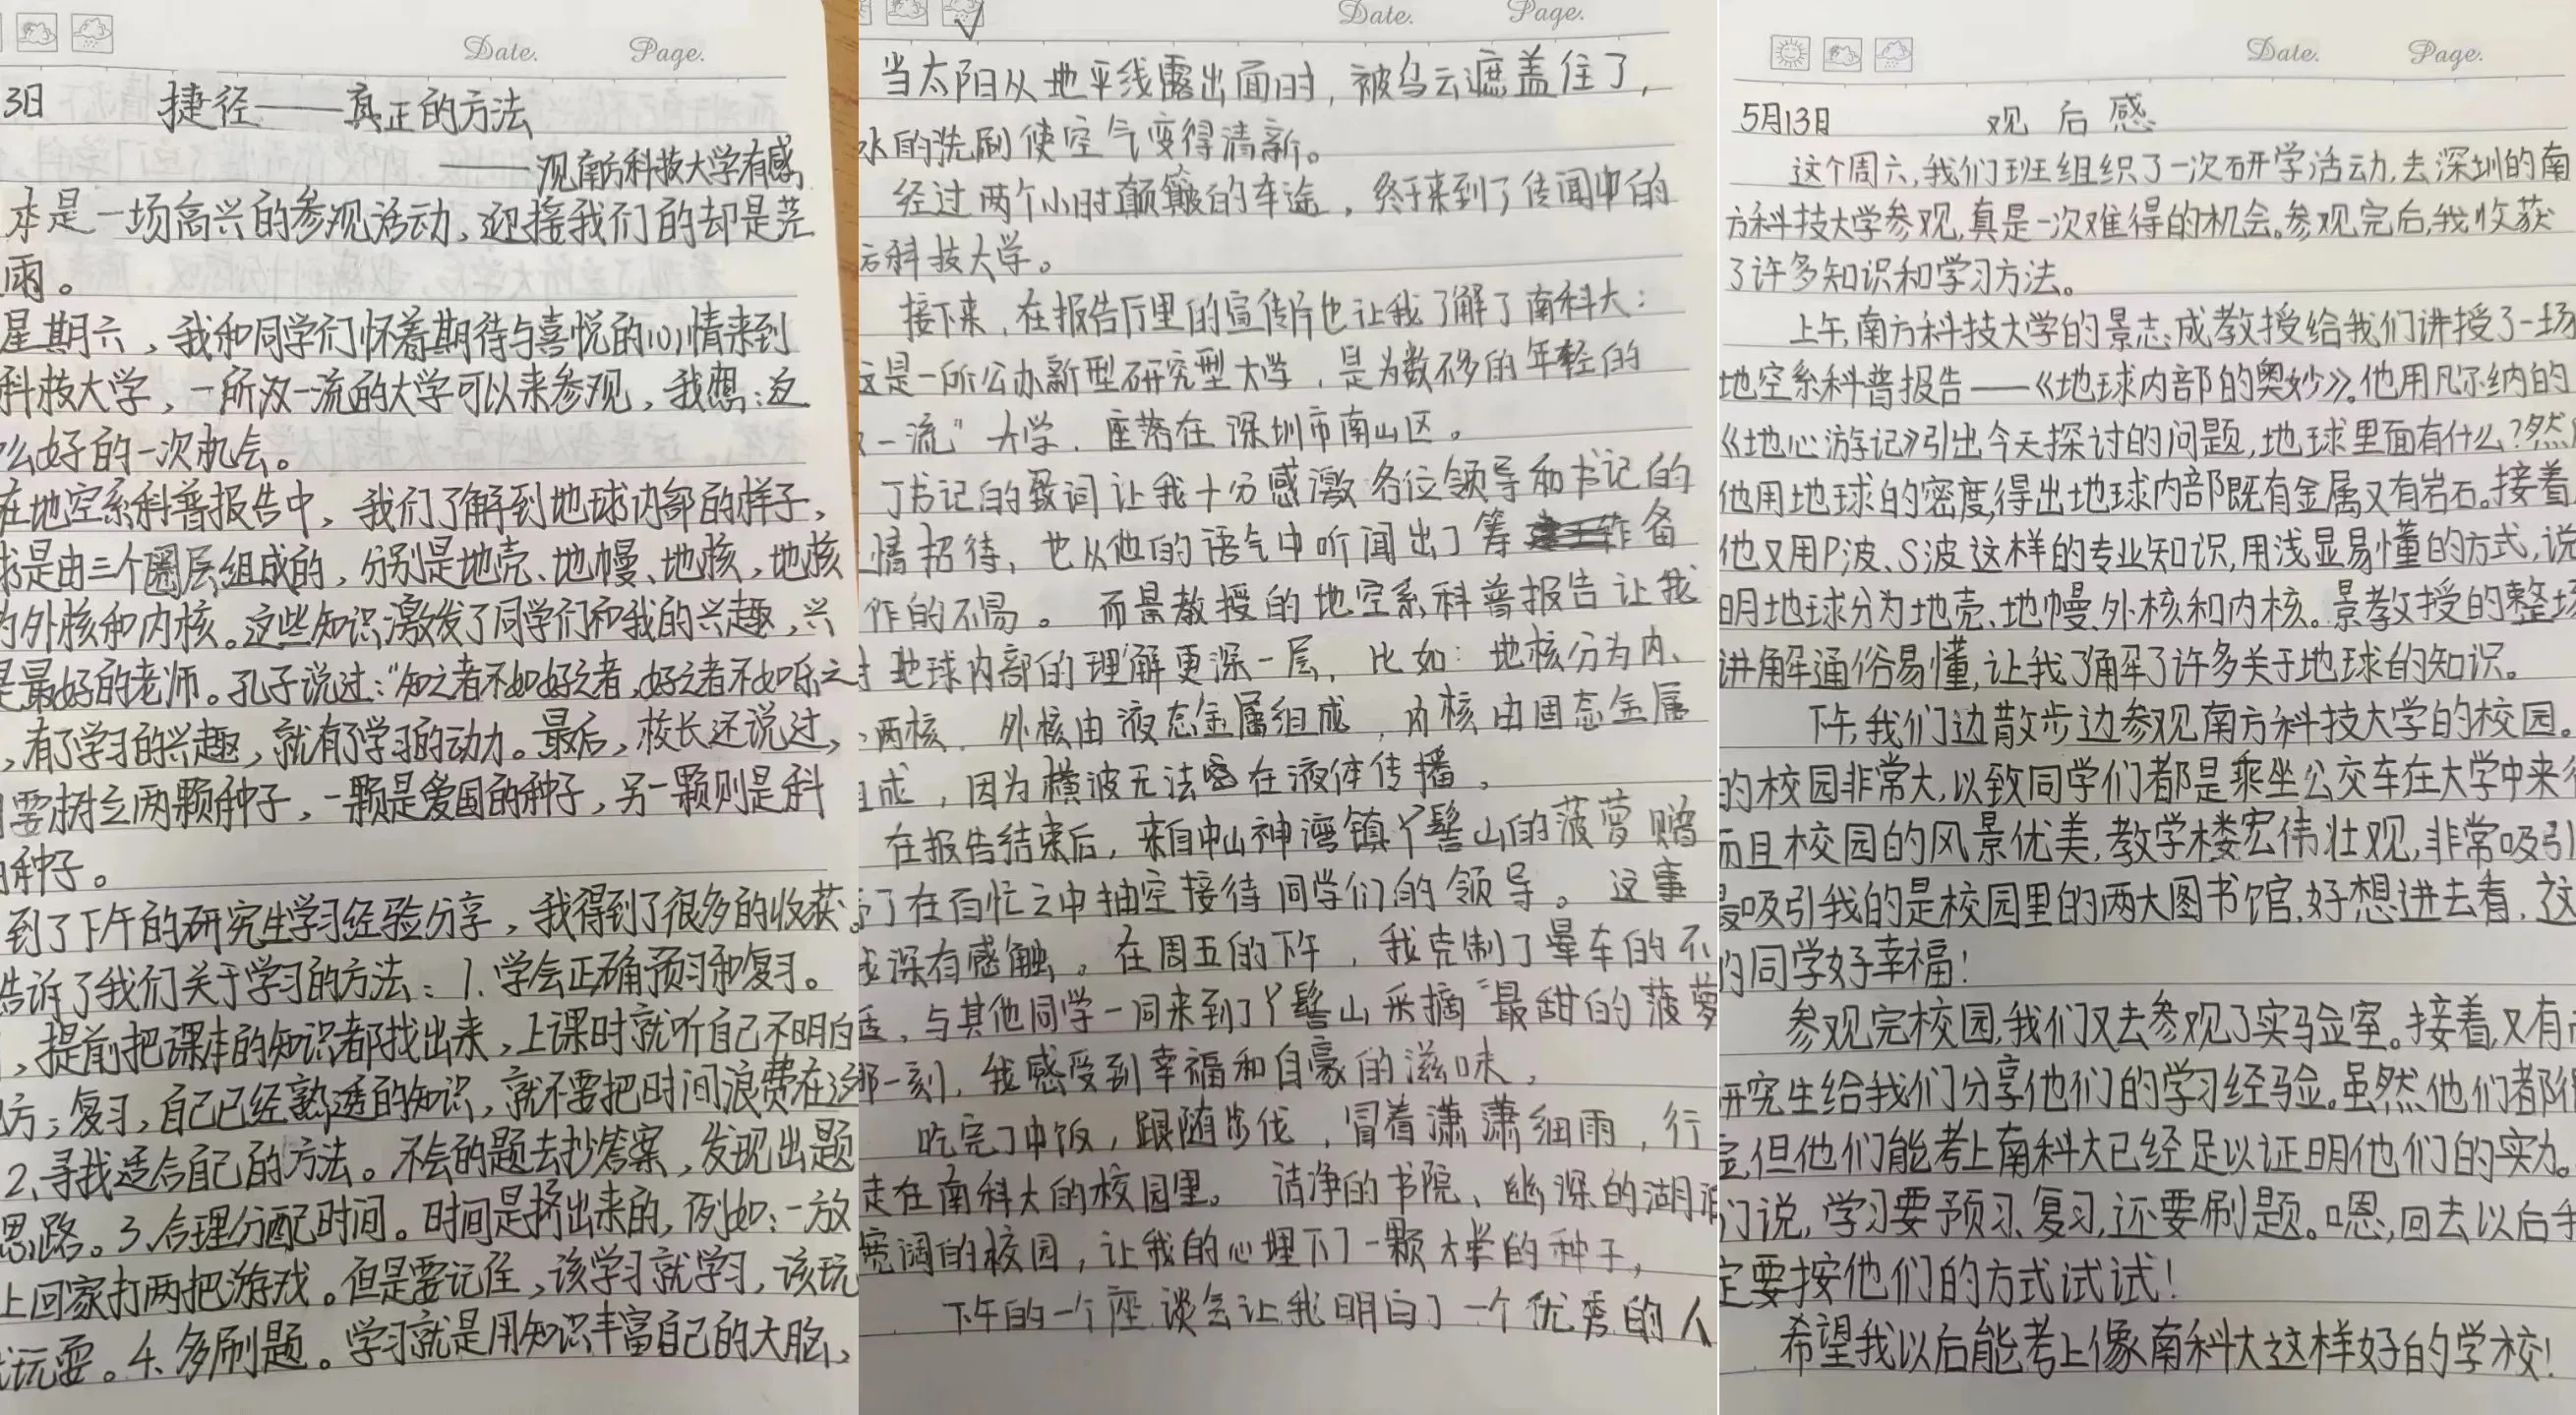 Date. Page.
3日 捷径——真正的方法
——观南方科技大学有感
本是一场高兴的参观活动，迎接我们的却是茫
雨。
星期六，我和同学们怀着期待与喜悦的心情来到
科技大学，一所双一流的大学可以来参观，我想：这
么好的一次机会。
在地空系科普报告中，我们了解到地球内部的样子，
球是由三个圈层组成的，分别是地壳、地幔、地核，地核
为外核和内核。这些知识激发了同学们和我的兴趣，兴
是最好的老师。孔子说过：“知之者不如好之者，好之者不如乐之
，有了学习的兴趣，就有了学习的动力。最后，校长还说过，
要树立两颗种子，一颗是爱国的种子，另一颗则是科
的种子。
到了下午的研究生学习经验分享，我得到了很多的收获。
告诉了我们关于学习的方法：1.学会正确预习和复习。
，提前把课本的知识都找出来，上课时就听自己不明白
方；复习，自己已经熟透的知识，就不要把时间浪费在这
2、寻找适合自己的方法。不会的题去抄答案，发现出题
思路。3、合理分配时间。时间是挤出来的，例如：一放
上回家打两把游戏。但是要记住，该学习就学习，该玩
玩耍。4、多刷题。学习就是用知识丰富自己的大脑，
Date. Page.
当太阳从地平线露出面时，被乌云遮盖住了，
水的洗刷使空气变得清新。
经过两个小时颠簸的车途，终于来到了传闻中的
方科技大学。
接下来，在报告厅里的宣传片也让我了解了南科大：
这是一所公办新型研究型大学，是为数不多的年轻的
双一流”大学，座落在深圳市南山区。
丁书记的致词让我十分感激各位领导和书记的
情招待，也从他的语气中听闻出了筹备
作的不易。而景教授的地空系科普报告让我
对地球内部的理解更深一层，比如：地核分为内、
两核，外核由液态金属组成，内核由固态金属
组成，因为横波无法在液体传播。
在报告结束后，来自中山神湾镇丫髻山的菠萝赠
了在百忙之中抽空接待同学们的领导。这事
我深有感触。在周五的下午，我克制了晕车的不
适，与其他同学一同来到了丫髻山采摘“最甜的菠萝
那一刻，我感受到幸福和自豪的滋味，
吃完了中饭，跟随步伐，冒着潇潇细雨，行
走在南科大的校园里。洁净的书院、幽深的湖泊
宽阔的校园，让我的心埋下了一颗大学的种子，
下午的一个座谈会让我明白了一个优秀的人
Date. Page.
5月13日 观后感
这个周六，我们班组织了一次研学活动，去深圳的南
方科技大学参观，真是一次难得的机会。参观完后，我收获
了许多知识和学习方法。
上午，南方科技大学的景志成教授给我们讲授了一场
地空系科普报告——《地球内部的奥妙》。他用凡尔纳的
《地心游记》引出今天探讨的问题，地球里面有什么？然
他用地球的密度，得出地球内部既有金属又有岩石。接着
他又用P波、S波这样的专业知识，用浅显易懂的方式，说
明地球分为地壳、地幔、外核和内核。景教授的整场
讲解通俗易懂，让我了解了许多关于地球的知识。
下午，我们边散步边参观南方科技大学的校园。
的校园非常大，以致同学们都是乘坐公交车在大学中来
而且校园的风景优美，教学楼宏伟壮观，非常吸引
最吸引我的是校园里的两大图书馆，好想进去看，这
的同学好幸福！
参观完校园，我们又去参观了实验室。接着，又有
研究生给我们分享他们的学习经验。虽然他们都
但他们能考上南科大已经足以证明他们的实力。
们说，学习要预习、复习，还要刷题。嗯，回去以后
定要按他们的方式试试！
希望我以后能考上像南科大这样好的学校！